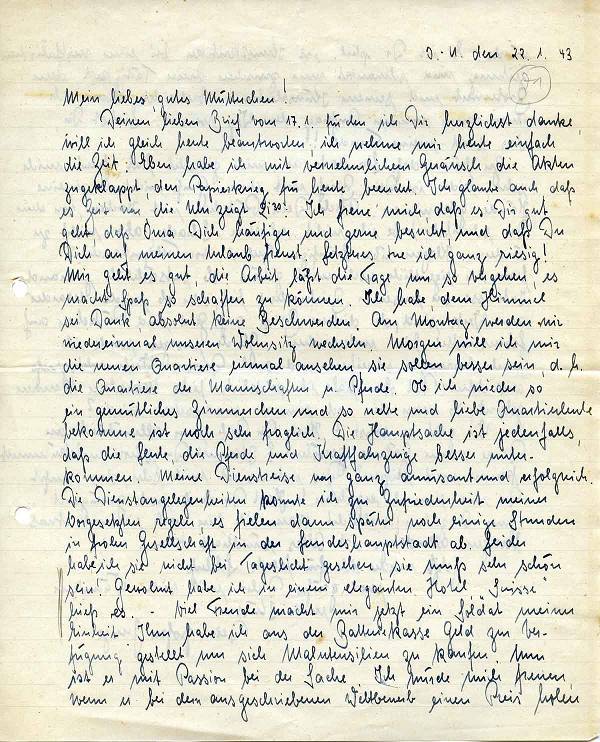 O.-U. den 22.1.43
Mein liebes, gutes Muttchen!
Deinen lieben Brief vom 17.1. für den ich Dir herzlichst danke,
will ich gleich heute beantworten, ich nehme mir heute einfach
die Zeit. Eben habe ich mit vernehmlichem Geräusch die Akten
zugeklappt, den Papierkrieg für heute beendet. Ich glaube auch daß
es Zeit war die Uhr zeigt 21³⁰! Ich freue mich daß es Dir gut
geht daß Oma Dich häufiger und gerne besucht und daß Du
Dich auf meinen Urlaub freust. Letzteres tue ich ganz riesig!
Mir geht es gut, die Arbeit läßt die Tage nur so vergehen, es
macht Spaß so schaffen zu können. Ich habe dem Himmel
sei Dank absolut keine Beschwerden. Am Montag werden wir
wiedereinmal unseren Wohnsitz wechseln. Morgen will ich mir
die neuen Quartiere einmal ansehen sie sollen besser sein, d.h.
die Quartiere der Mannschaften u. Pferde. Ob ich wieder so
ein gemütliches Zimmerchen und so nette und liebe Quartiersleute
bekomme ist noch sehr fraglich. Die Hauptsache ist jedenfalls,
daß die Leute die Pferde und Kraftfahrzeuge besser unter-
kommen. Meine Dienstreise war ganz amüsant und erfolgreich.
Die Dienstangelegenheiten konnte ich zur Zufriedenheit meiner
Vorgesetzten regeln es fielen dann später noch einige Stunden
in froher Gesellschaft in der Landeshauptstadt ab. Leider
habe ich sie nicht bei Tageslicht gesehen, sie muß sehr schön
sein! Gewohnt habe ich in einem eleganten Hotel "Suisse"
hieß es. - Viel Freude macht mir jetzt ein Soldat meiner
Einheit. Ihm habe ich aus der Batteriekasse Geld zur Ver-
fügung gestellt um sich Malutensilien zu kaufen. Nun
ist er mit Passion bei der Sache. Ich würde mich freuen,
wenn er bei dem ausgeschriebenen Wettbewerb einen Preis holen